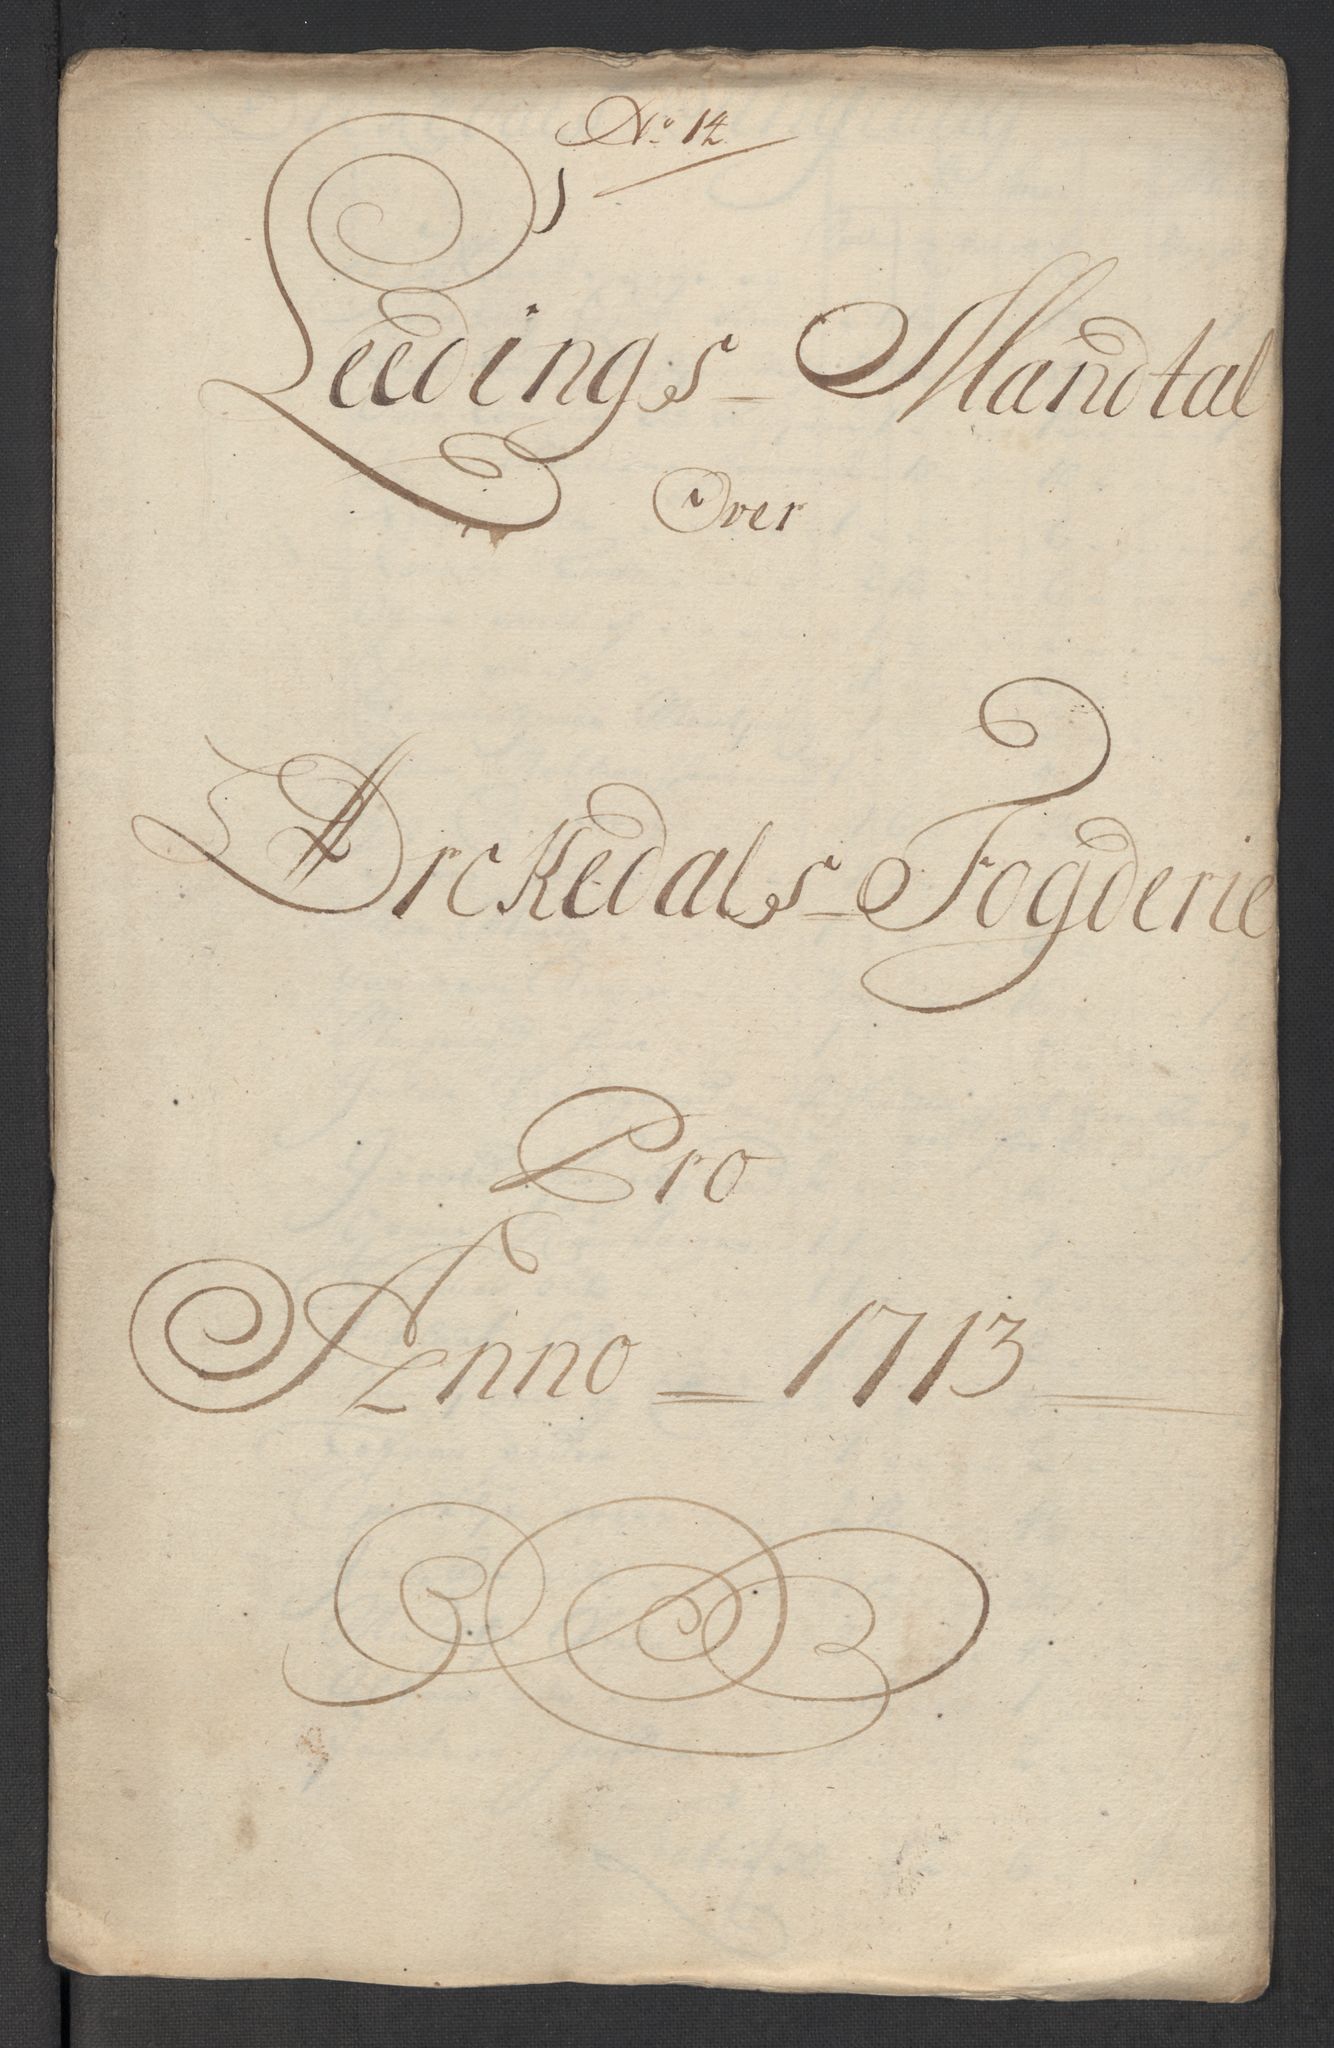 No 14
Leedings- Mandtal
Over
Orckedals- Fogderie
Pro
Anno = 1713